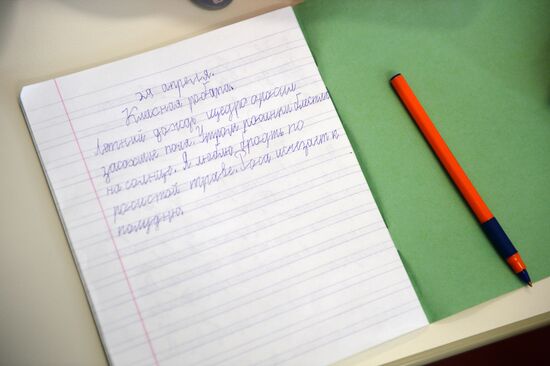 29 апреля.
Класная работа.
Летний дождь щедро оросил
засохшие поля. Утром росинки блестели
на солнце. Я люблю бродить по
росистой траве. Роса исчезает к
полудню.